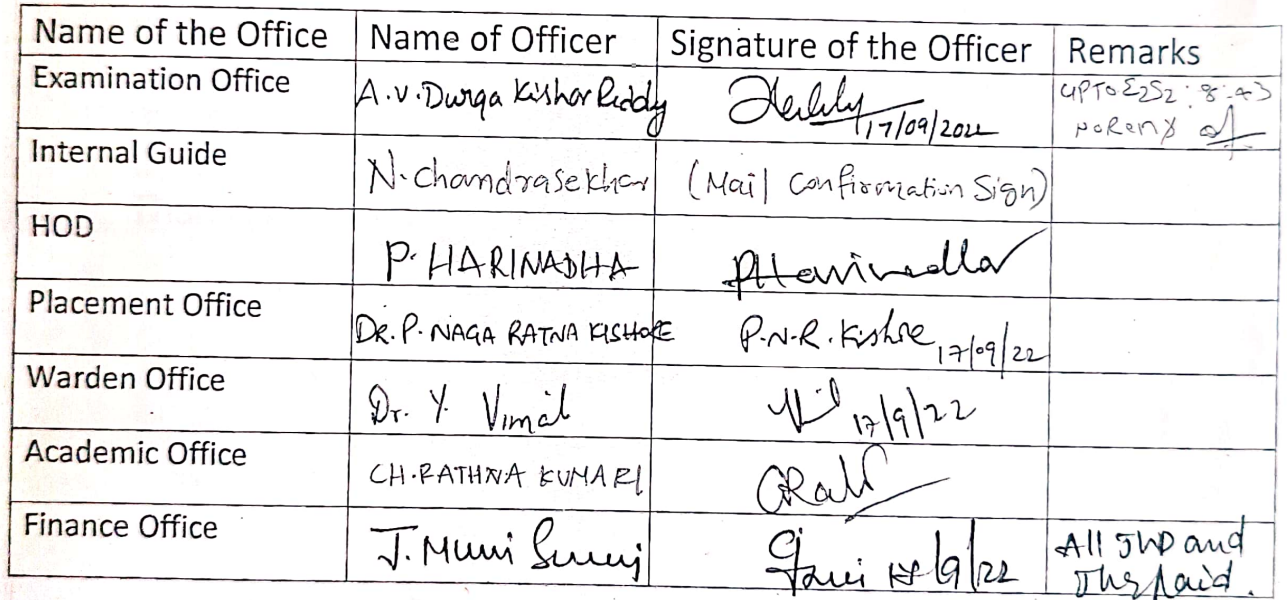 Name of the Office Name of Officer Signature of the Officer Remarks
Examination Office A.V. Durga Kishor Reddy 17/09/2022 UPTO E2S2: 8.43
Internal Guide N. Chandrasekhar (Mail Confirmation Sign)
HOD P. HARINADHA PHarinadha
Placement Office DR. P. NAGA RATNA KISHORE P.N.R. Kishore 17/09/22
Warden Office Dr. Y. Vimal 17/9/22
Academic Office CH. RATHNA KUMARI
Finance Office J. Muni /9/22 All and
paid.